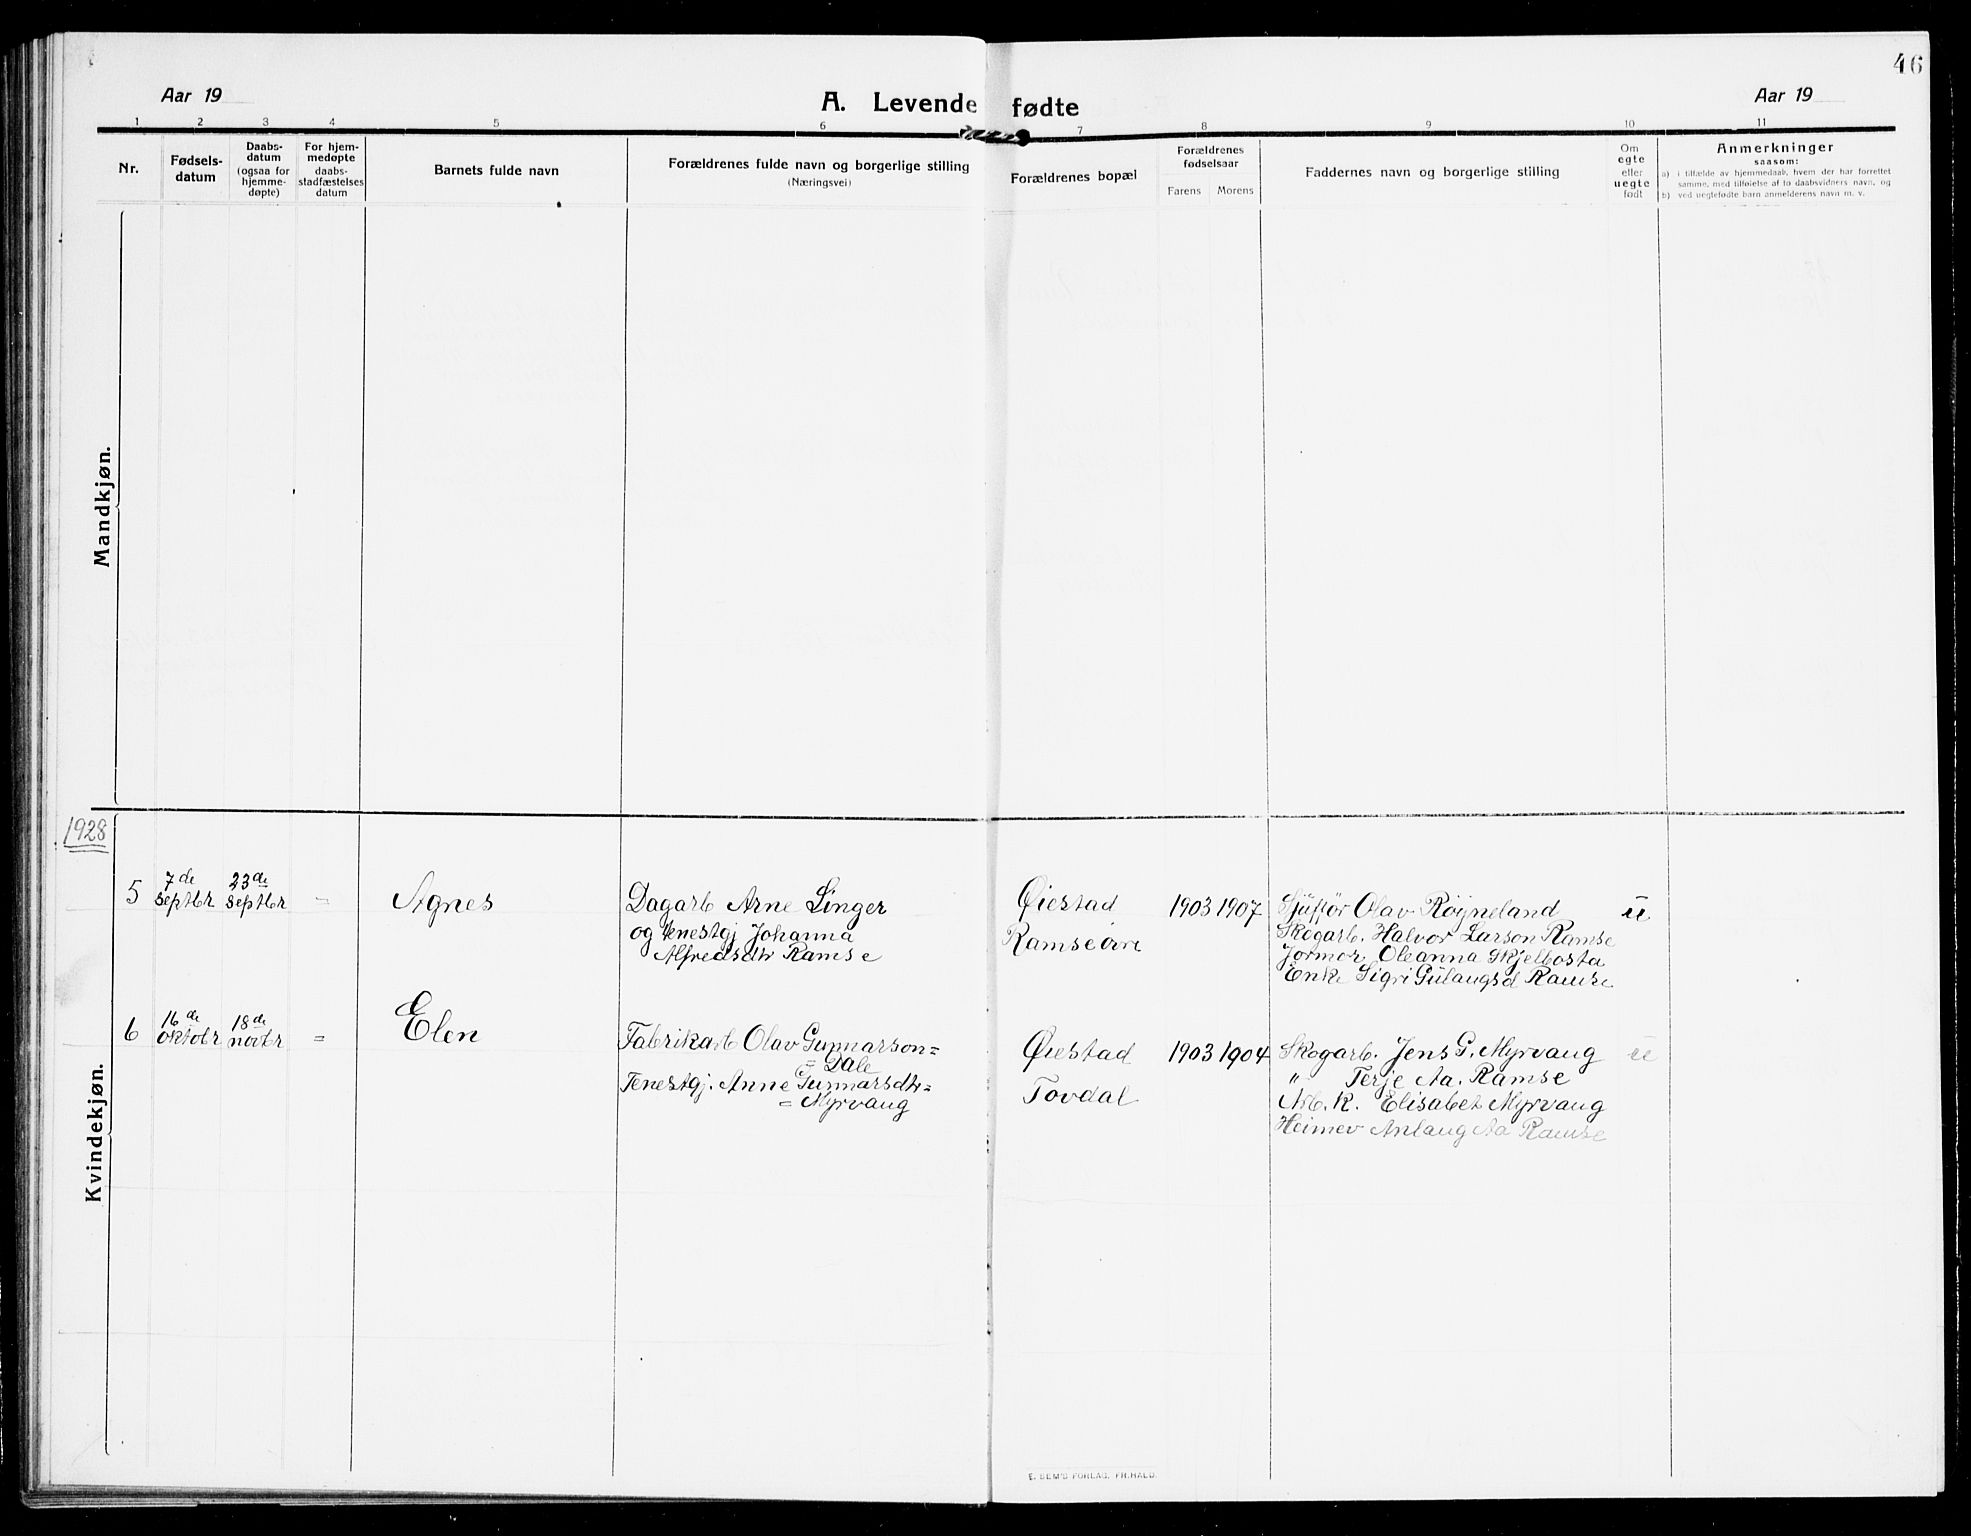 46
Aar 19
A. Levende fødte
Aar 19
1 2 3 4 5 6 7 8 9 10 11
Nr.
Fødsels-
datum
Daabs-
datum
(ogsaa for
hjemme-
døpte)
For hjem-
medøpte
daabs-
stadfæstelses
datum
Barnets fulde navn
Forældrenes fulde navn og borgerlige stilling
(Næringsvei)
Forældrenes bopæl
Forældrenes
fødselsaar
Farens Morens
Faddernes navn og borgerlige stilling
Om
egte
eller
uegte
født
Anmerkninger
saasom:
a) i tilfælde av hjemmedaab, hvem der har forrettet
samme, med tilføielse af to daabsvidners navn, og
b) ved uegtefødte barn anmelderens navn m. v.
Mandkjøn.
1928
Kvindekjøn.
5
7de
septbr
23de
septbr
=
Agnes
Dagarb Arne Linger
og tenestgj Johanna
Alfredsdtr Ramse
Øiestad
Ramseøire
1903 1907
Sjüffør Olav Røyneland
Skogarb. Halvor Larson Ramse
Jormor Oleanna Skjelbosta
Enke Sigri Gülaugsd Ramse
ü
6
16de
oktobr
18de
novbr
=
Elen
Fabrikarb Olav Gunnarson=
= Dale
Tenestgj. Anne Gunnarsdtr=
= Myrvang
Øiestad
Tovdal
1903 1904
Skogarb. Jens G. Myrvang
" Terje Aa. Ramse
Arb. K. Elisabet Myrvang
Heimev Anlaug Aa Ramse
ü
E. SEM'S FORLAG, FR.HALD.